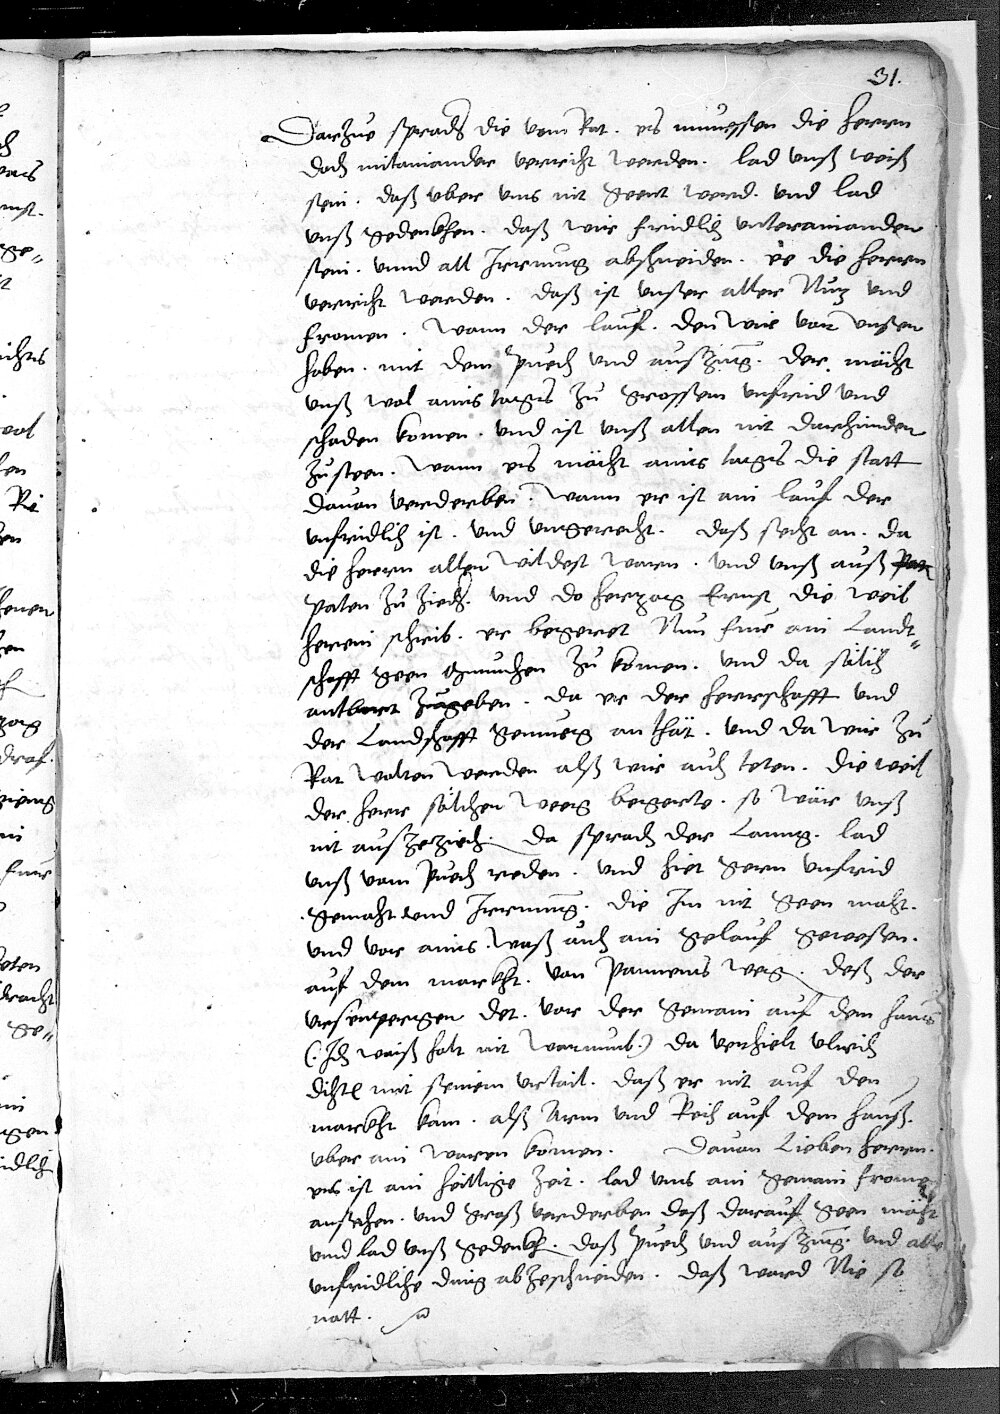 31.
Darzue sprach die vom Rat. es muessen die herrn
doch mitainander verricht werden. lad unß weiß
sein. daß uber uns nit geent werd. und lad
unß gedenkhen. daß wir fridlich unterainander
sein. unnd all Irrnung abschneiden. ee die herrn
verricht werden. daß ist unser aller Nuz und
fromen. wann der lauf. den wir vor unsen
haben. mit dem puech und auszug. der möcht
unß wol ains tages zu grossem unfrid und
schaden komen. und ist unß allen nit darhinder
zusteen. wann es möcht ains tages die statt
davon verderben. wann er ist ain lauf der
unfridlich ist. und ungerecht. daß secht an. da
die herrn allen wildest waren. und unß auß
paten zu ziech. und do herzog Ernst die weil
herein schrib. er begeret Nun fur ain Landt„
schafft geen Munchen zu komen. und da sölich
antburt zugeben. da er der herrschafft und
der Landschafft genueg an thät. und da wir zu
Rat wolten werden alß wir auch teten. die weil
der herr sölichen weeg begerte. so wär unß
nit auszeziech. da sprach der Lanng. lad
unß vom puech reden. und hiet gern unfrid
gemacht und Irrnung. die Im nit geen macht.
und vor ains. waß auch ain gelauf gewesen.
auf dem markht. von pannens weg. deß der
ursenperger det. vor der gemain auf dem hauß
(: Ich waiß halt nit warumb :) da verhielt ulrich
dichtl mit seinem urtail. daß er nit auf den
markht kam. alß Arm und Reich auf dem hauß.
uber ain waren komen. Davon Lieben herrn.
es ist ain heillige zeit. lad uns ain gemain fromen
ansehen. und groß verderben daß darauß geen möcht
unnd lad unß gedenkh. daß puech und auszug. und alle
unfridliche ding abzeschneiden. daß ward Nie so
natt.